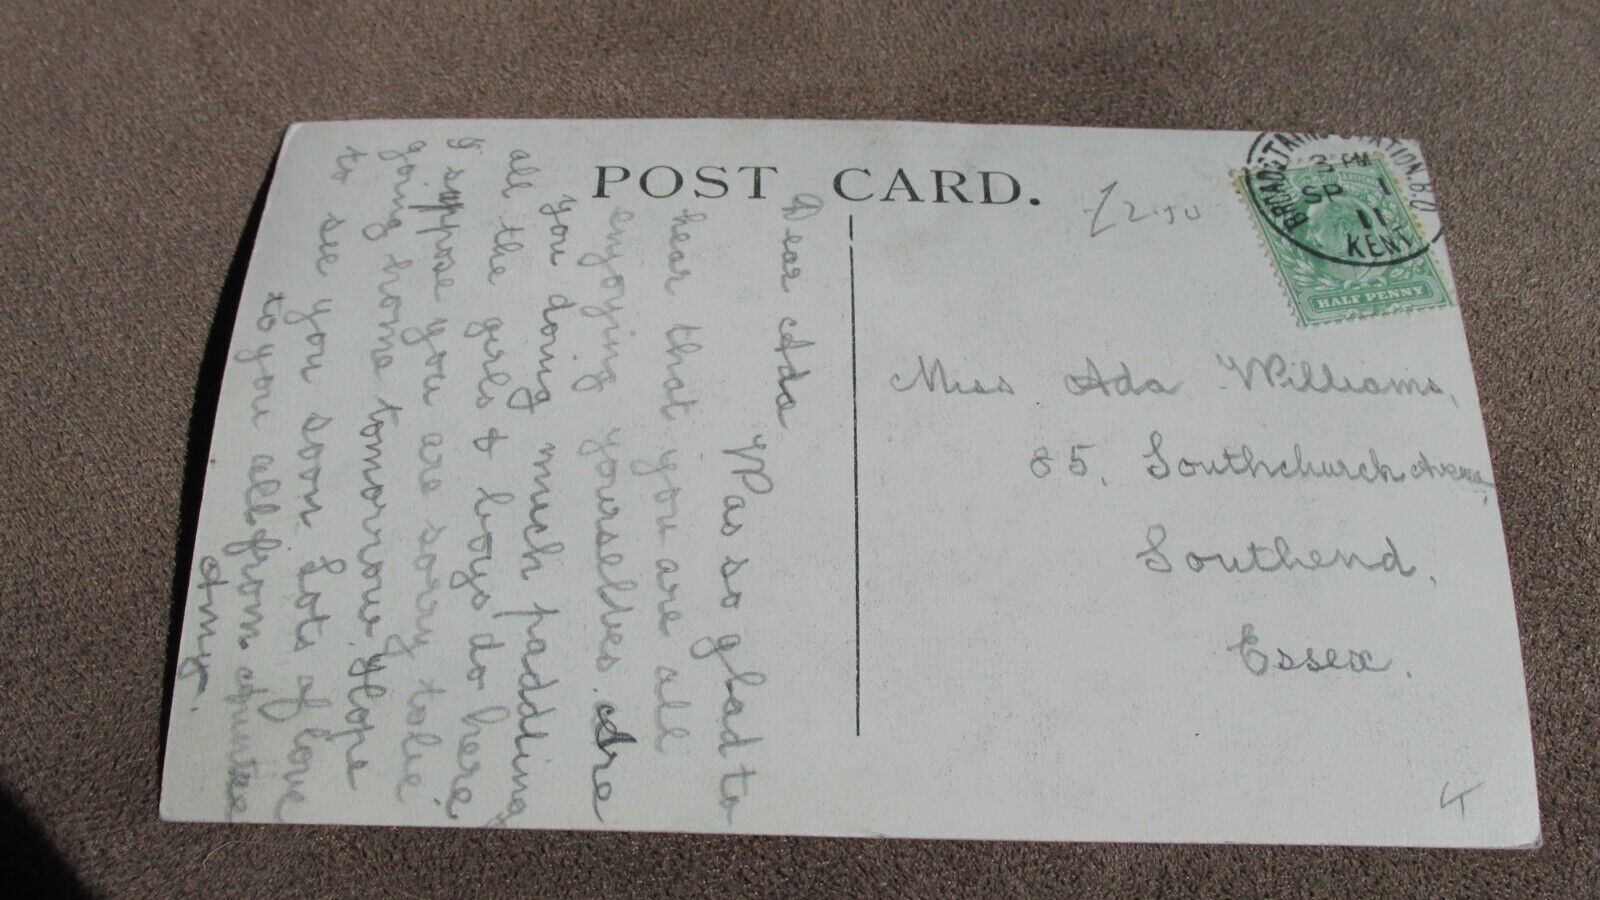 POST CARD.
£2.50
BROADSTAIRS STATION B.O.
3 PM
SP 1
11
KENT
HALF PENNY
Miss Ada Williams,
85, Southchurch Avenue,
Southend,
Essex.
Dear Ada
Was so glad to
hear that you are all
enjoying yourselves. Are
you doing much paddling
all the girls & boys do here
I suppose you are sorry to be
going home tomorrow. Hope
to see you soon. Lots of love
to you all from Auntie
Amy.